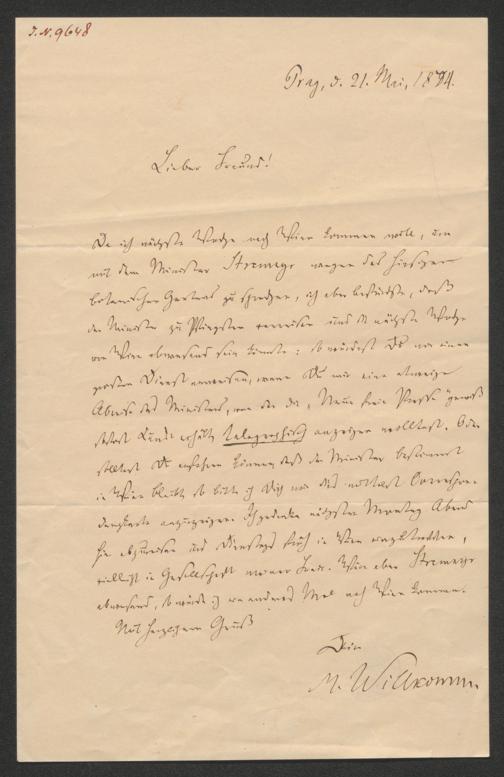 I.N. 9648
Prag, d. 21. Mai, 1874.
Lieber Freund!
Da ich nächste Woche nach Wien kommen will, um
mit dem Minister Stremayr wegen des hiesigen
botanischen Gartens zu sprechen, ich aber befürchte, daß
der Minister zu Pfingsten verreisen und nächste Woche
von Wien abwesend sein könnte: so würdest Du mir einen
großen Dienst erweisen, wenn Du mir eine etwaige
Abreise des Ministers, von der die "Neue freie Presse" gewiß
sofort Kunde erhält, telegraphisch anzeigen wolltest. Oder
solltest Du erfahren können, daß der Minister bestimmt
in Wien bleibt, so bitte ich Dich mir dies mittelst Correspon-
denzkarte anzuzeigen. Ich gedenke nächsten Montag Abend
hier abzureisen und Dienstag früh in Wien einzutreffen,
vielleicht in Gesellschaft meiner Frau. Wäre aber Stremayr
abwesend, so würde ich ein anderes Mal nach Wien kommen.
Mit herzlichem Gruß
Dein
M. Willkomm